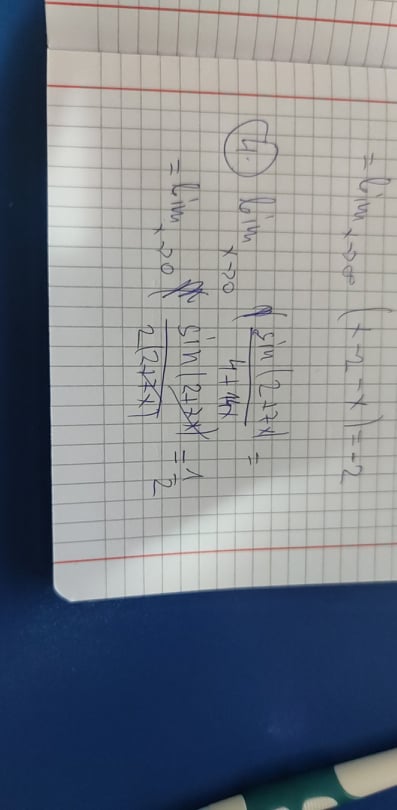 = lim x->∞ (x-2-x) = -2
4. lim x->0 sin(2+7x) / 4+14x =
= lim x->0 sin(2+7x) / 2(2+7x) = 1/2